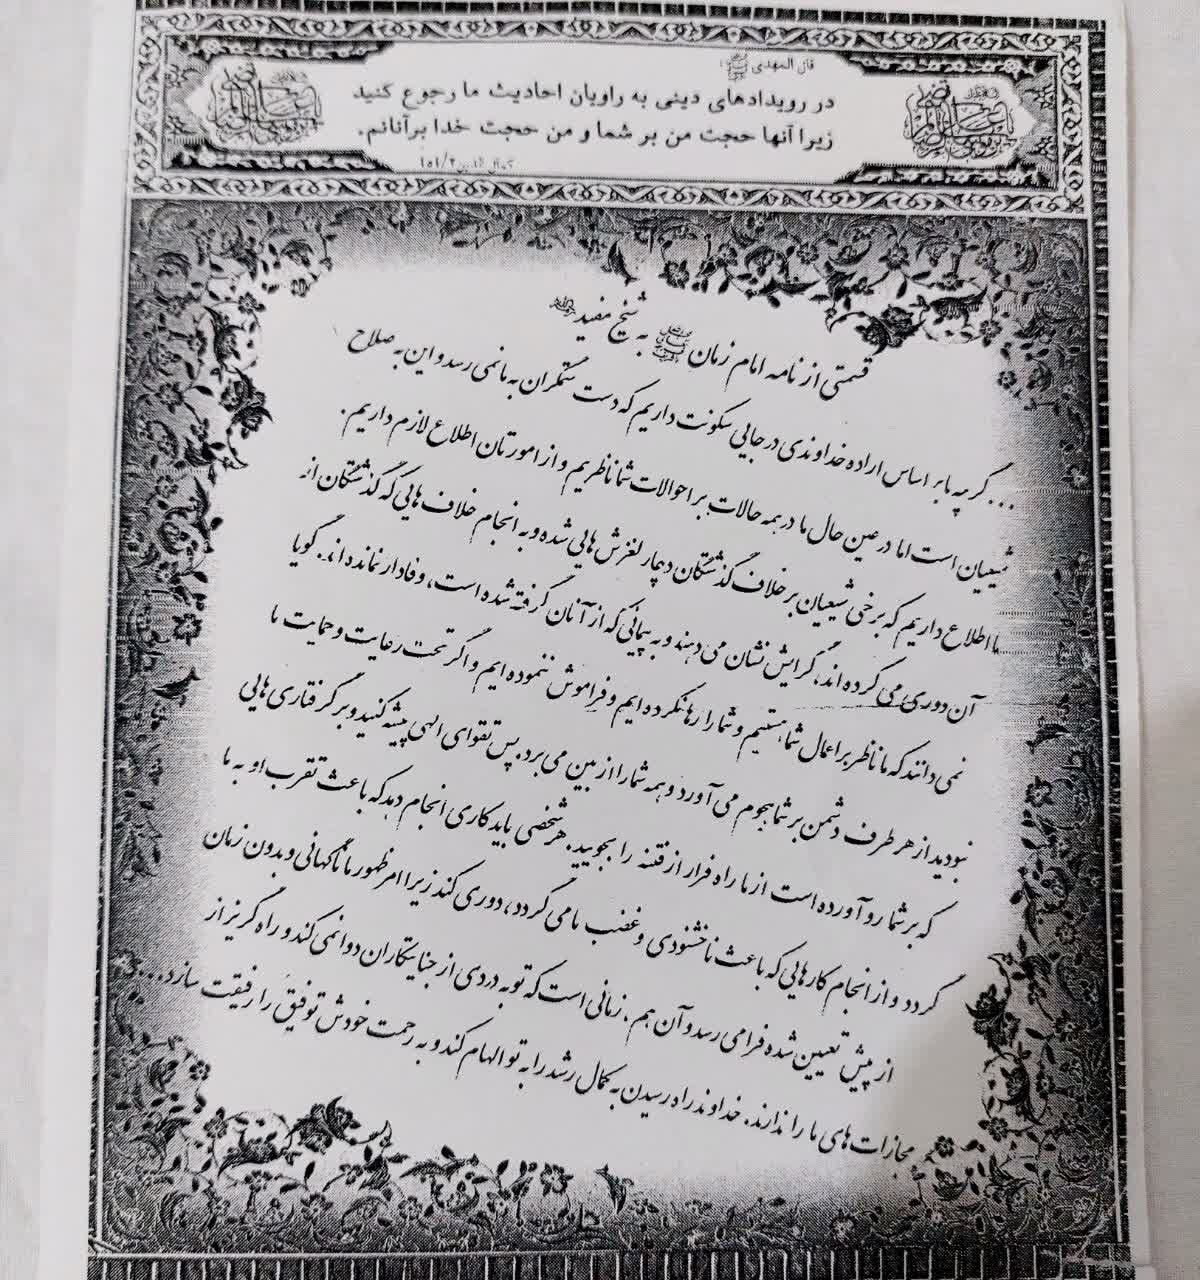 قال المهدی
در رویدادهای دینی به راویان احادیث ما رجوع کنید
زیرا آنها حجت من بر شما و من حجت خدا برآنانم.
کمال الدین ۱۵۱/۲
قسمتی از نامه امام زمان به شیخ مفید
... گرچه ما بر اساس اراده خداوندی در جایی سکونت داریم که دست ستمگران به ما نمی رسد و این به صلاح
شیعیان است اما در عین حال ما در همه حالات بر احوالات شما ناظریم و از امورتان اطلاع لازم داریم.
ما اطلاع داریم که برخی شیعیان بر خلاف گذشتگان دچار لغزش هایی شده و به انجام خلاف هایی که گذشتگان از
آن دوری می کرده اند، گرایش نشان می دهند و به پیمانی که از آنان گرفته شده است، وفادار نمانده اند. گویا
نمی دانند که ما ناظر بر اعمال شما هستیم و شما را رها نکرده ایم و فراموش ننموده ایم و اگر تحت رعایت و حمایت ما
نبودید از هر طرف دشمن بر شما هجوم می آورد و همه شما را از بین می برد. پس تقوای الهی پیشه کنید و بر گرفتاری هایی
که بر شما رو آورده است از ما راه فرار از فتنه را بجویید. هر شخصی باید کاری انجام دهد که باعث تقرب او به ما
گردد و از انجام کارهایی که باعث ناخشنودی و غضب ما می گردد، دوری کند زیرا امر ظهور ما ناگهانی و بدون زمان
از پیش تعیین شده فرا می رسد و آن هم، زمانی است که توبه دردی از جنایتکاران دوا نمی کند و راه گریز از
مجازات های ما را ندارند. خداوند راه رسیدن به کمال رشد را به تو الهام کند و به رحمت خودش توفیق را رفیقت سازد...